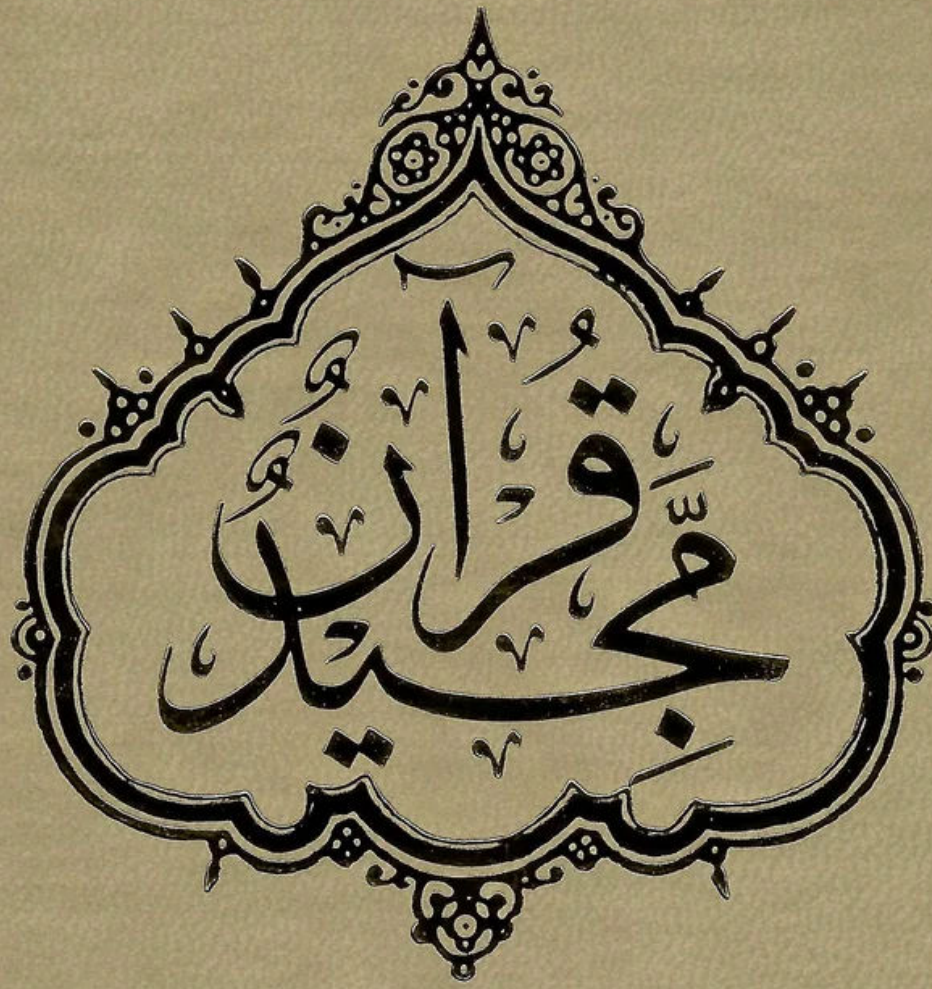 قُرْآنٌ
مَّجِيدٌ